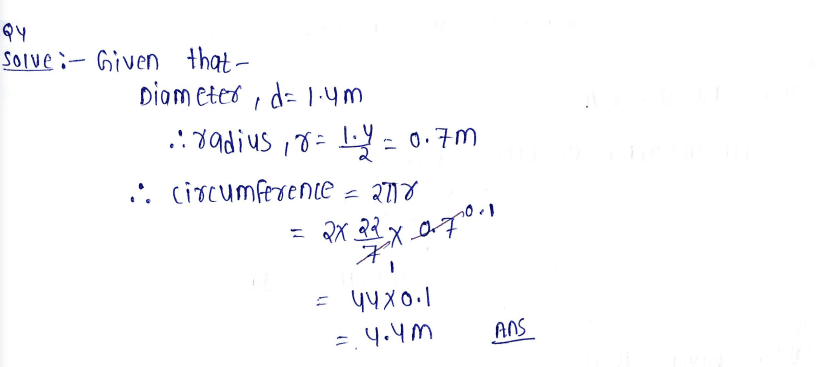 Q4
Solve :- Given that -
Diameter, d = 1.4m
∴ radius, r = 1.4/2 = 0.7m
∴ circumference = 2πr
= 2 × 22/7 1 × 0.7 0.1
= 44 × 0.1
= 4.4m Ans